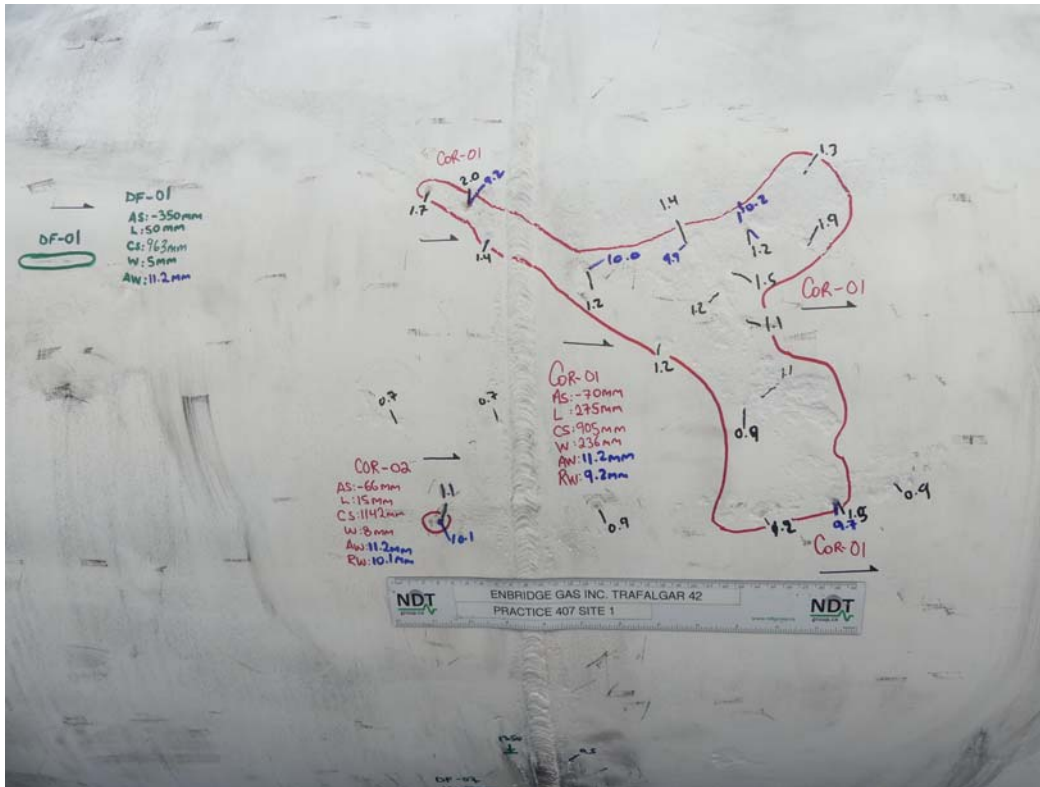 DF-01
AS:-350mm
L:50mm
CS:963mm
W:5mm
AW:11.2mm
DF-01
COR-01
2.0
9.2
1.7
1.4
1.3
1.4
10.2
1.2
1.9
9.9
10.0
1.2
1.5
1.2
COR-01
1.1
1.2
1.1
COR-01
AS:-70mm
L:275mm
CS:905mm
W:236mm
AW:11.2mm
RW:9.2mm
0.9
0.7
0.7
COR-02
AS:-66mm
L:15mm
CS:1142mm
W:8mm
AW:11.2mm
RW:10.1mm
1.1
10.1
0.9
0.9
1.2
1.5
9.7
COR-01
NDT
group.ca
ENBRIDGE GAS INC. TRAFALGAR 42
PRACTICE 407 SITE 1
NDT
group.ca
DF-02